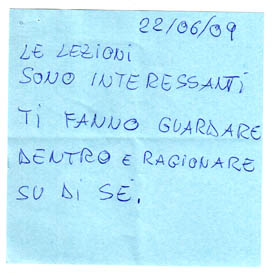 22/06/09
LE LEZIONI
SONO INTERESSANTI
TI FANNO GUARDARE
DENTRO E RAGIONARE
SU DI SÉ.